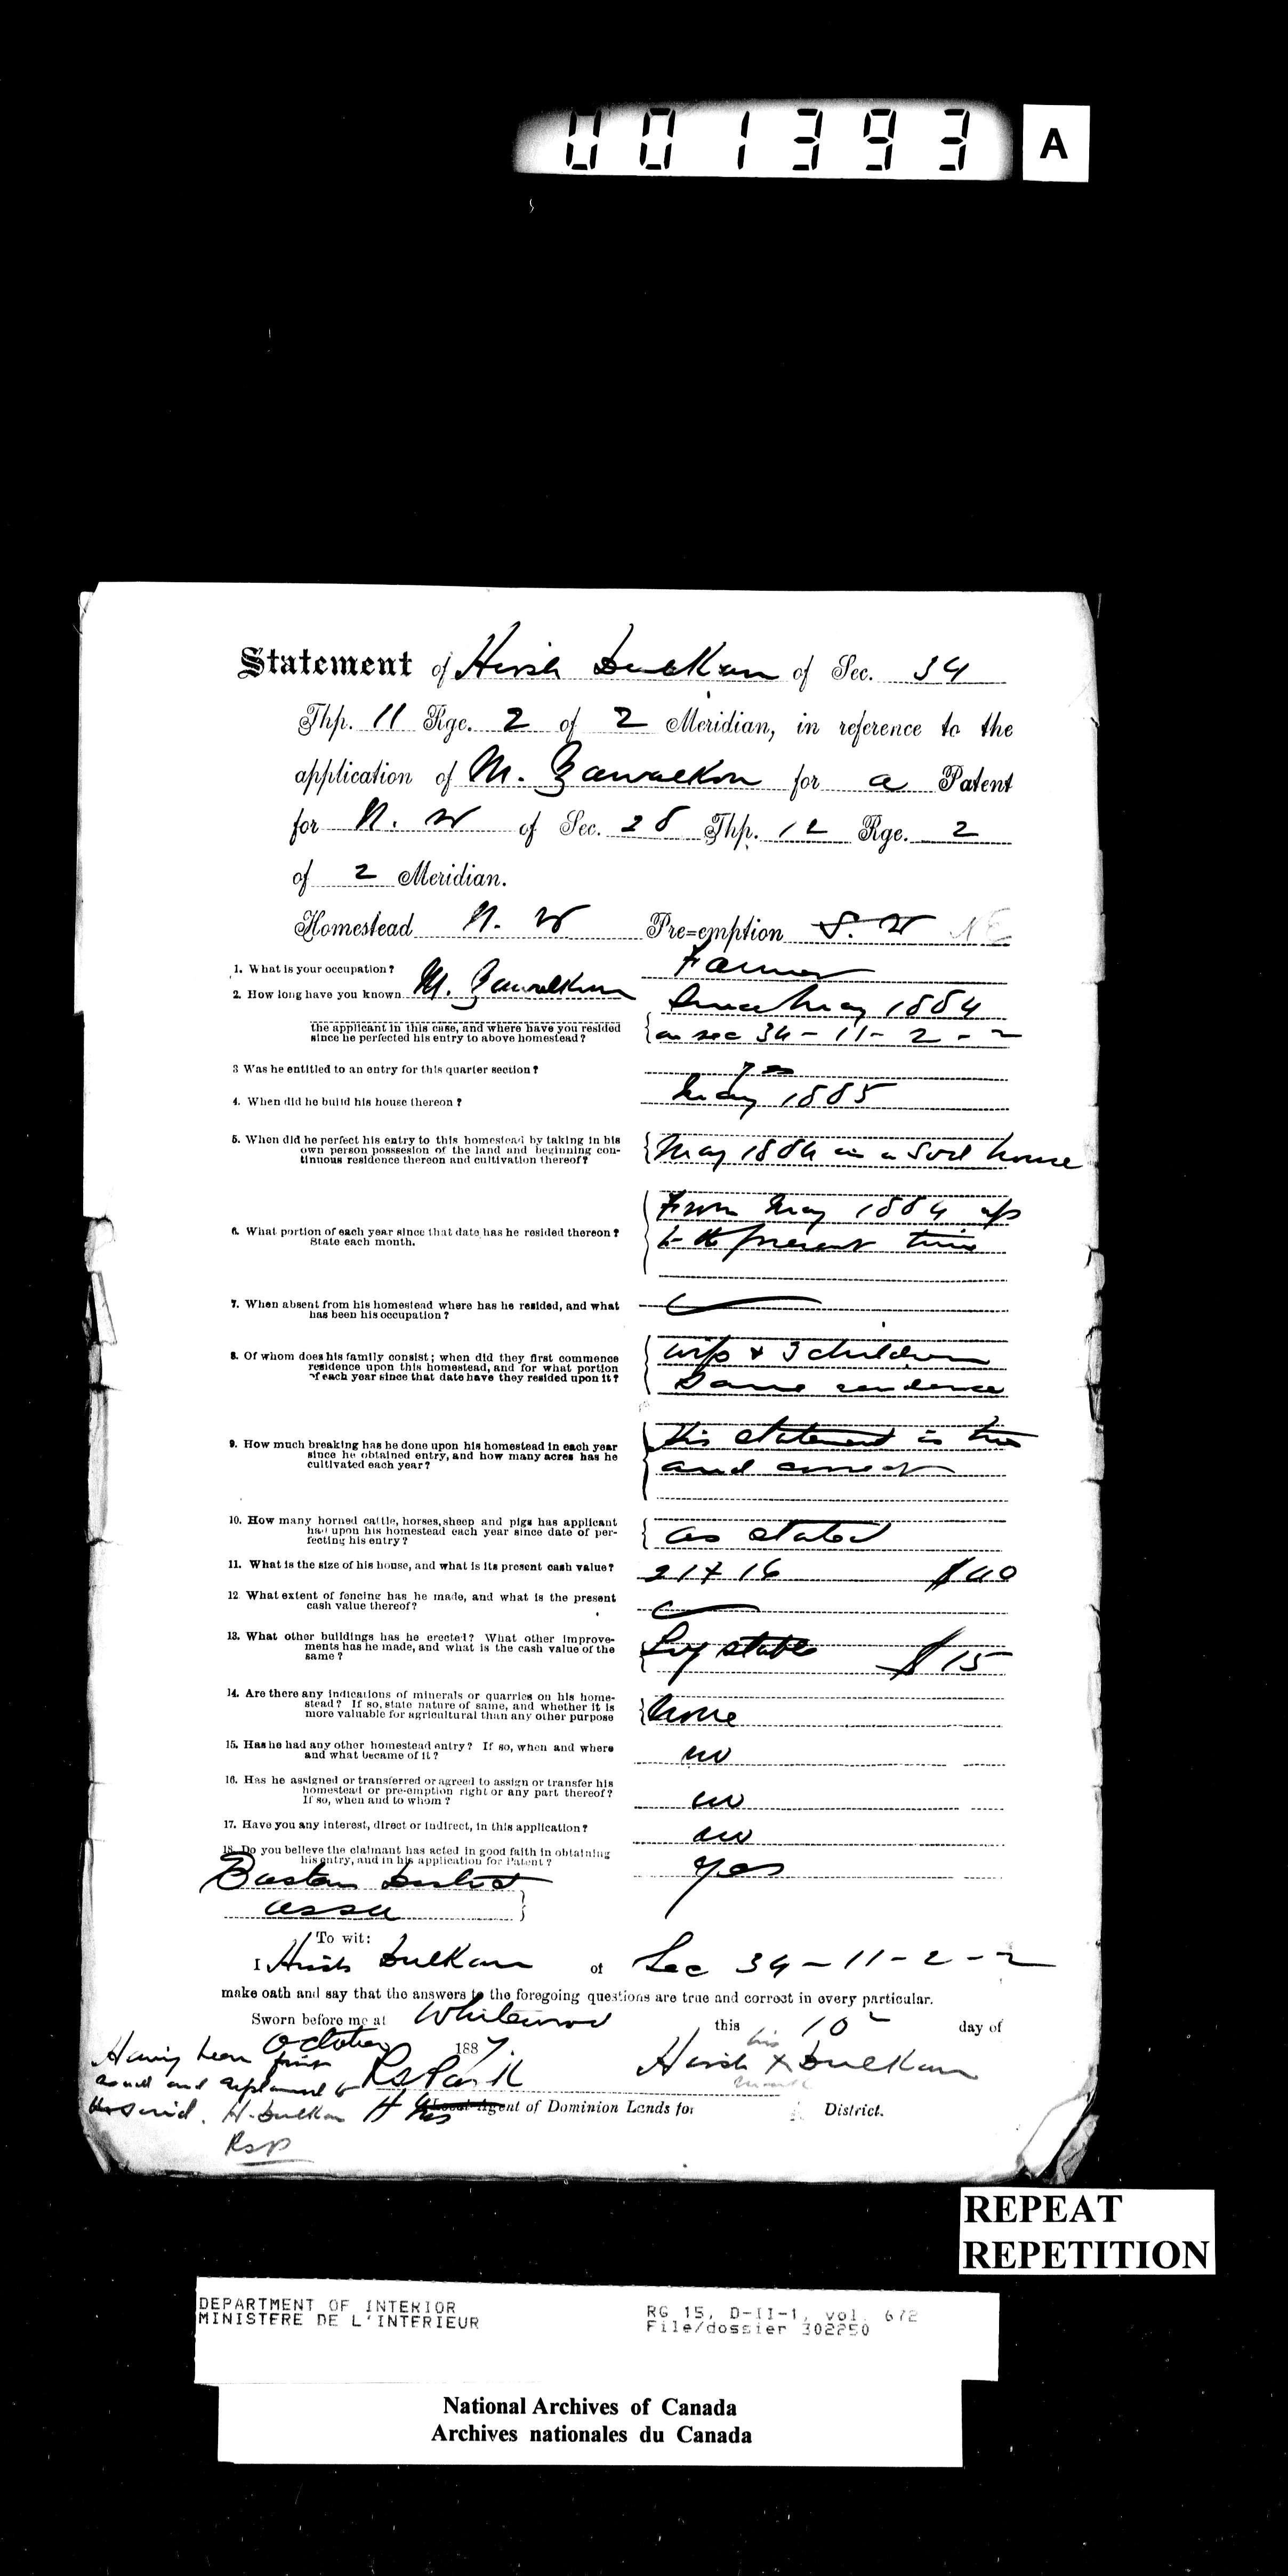 001393 A
Statement of Hirsh Dulkan of Sec. 34
Thp. 11 Rge. 2 of 2 Meridian, in reference to the
application of M. Zawalkon for a Patent
for N. W of Sec. 28 Thp. 12 Rge. 2
of 2 Meridian.
Homestead N. W Pre=emption S. W NE
1. What is your occupation? Farmer
2. How long have you known M. Zawalkon Since May 1884
the applicant in this case, and where have you resided
since he perfected his entry to above homestead? on sec 34 - 11 - 2 - 2
3 Was he entitled to an entry for this quarter section? yes
4. When did he build his house thereon? May 1885
5. When did he perfect his entry to this homestead by taking in his
own person possession of the land and beginning con-
tinuous residence thereon and cultivation thereof? May 1884 in a Sod house
6. What portion of each year since that date has he resided thereon? From May 1884 up
State each month. to the present time
7. When absent from his homestead where has he resided, and what
has been his occupation?
8. Of whom does his family consist; when did they first commence wife & 3 children
residence upon this homestead, and for what portion
of each year since that date have they resided upon it? Same residence
9. How much breaking has he done upon his homestead in each year his statement is true
since he obtained entry, and how many acres has he and correct
cultivated each year?
10. How many horned cattle, horses, sheep and pigs has applicant
had upon his homestead each year since date of per- as stated
fecting his entry?
11. What is the size of his house, and what is its present cash value? 21 x 16 $40
12 What extent of fencing has he made, and what is the present
cash value thereof?
13. What other buildings has he erected? What other improve-
ments has he made, and what is the cash value of the Log stable $15
same?
14. Are there any indications of minerals or quarries on his home-
stead? If so, state nature of same, and whether it is
more valuable for agricultural than any other purpose None
15. Has he had any other homestead entry? If so, when and where
and what became of it? no
16. Has he assigned or transferred or agreed to assign or transfer his
homestead or pre-emption right or any part thereof?
If so, when and to whom? no
17. Have you any interest, direct or indirect, in this application? no
18. Do you believe the claimant has acted in good faith in obtaining
his entry, and in his application for Patent? yes
Eastern District
Assa
To wit:
I Hirsh Dulkan of Sec 34 - 11 - 2 - 2
make oath and say that the answers to the foregoing questions are true and correct in every particular.
Sworn before me at Whitewood this 10 day of
October 1887. his
Having been first Hirsh X Dulkan
read and explained to RS Park mark
the said. H. Dulkan Local Agent of Dominion Lands for District.
RSP
REPEAT
REPETITION
DEPARTMENT OF INTERIOR
MINISTERE DE L'INTERIEUR
RG 15, D-II-1, vol. 672
File/dossier 302250
National Archives of Canada
Archives nationales du Canada